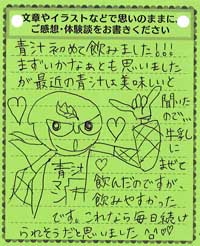 文章やイラストなどで思いのままに、
ご感想・体験談をお書きください
青汁初めて飲みました!!!
まずいかなぁとも思いました
が最近の青汁は美味しいと
聞いた
ので…
牛乳
に
まぜて
飲んだのですが、
飲みやすかった
です。これなら毎日続け
られそうだと思いました
青汁
マン